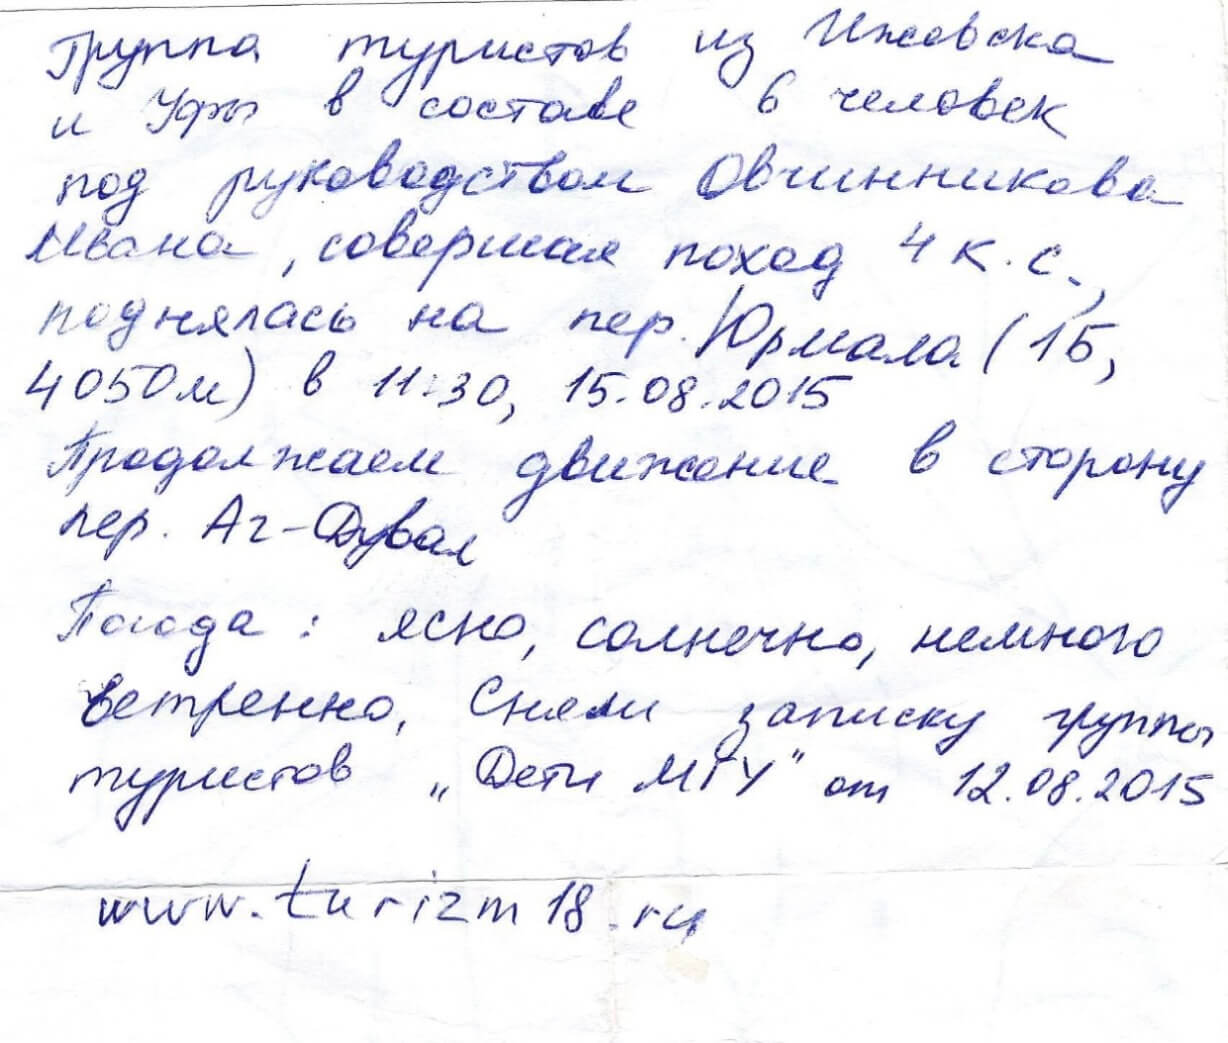 Группа туристов из Ижевска
и Уфы в составе 6 человек
под руководством Овчинникова
Ивана, совершая поход 4 к.с.,
поднялась на пер. Юрмала (1Б,
4050м) в 11:30, 15.08.2015
Продолжаем движение в сторону
пер. Аг-Дувал
Погода: ясно, солнечно, немного
ветренно, Сняли записку группы
туристов „Дети МГУ" от 12.08.2015
www.turizm18.ru